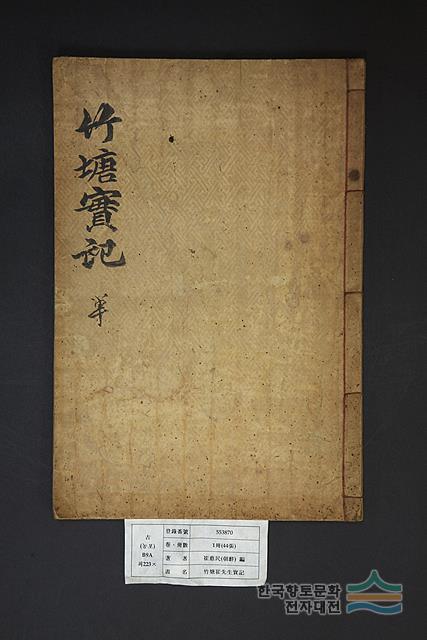 竹塘實記
單
古
(농포)
B9A
최223ㅈ
登錄番號 553870
卷·冊數 1冊(44張)
著者 崔惠民(朝鮮) 編
書名 竹塘崔先生實記
한국향토문화
전자대전